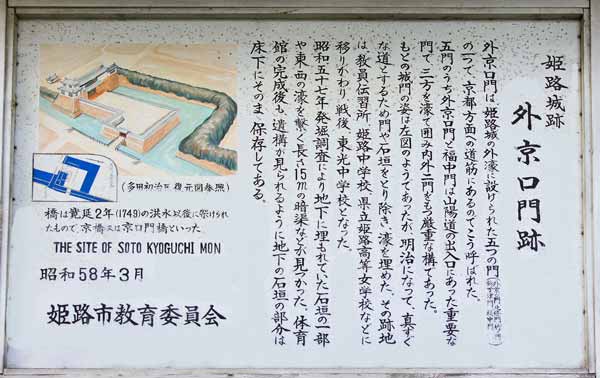 姫路城跡
外京口門跡
外京口門は、姫路城の外濠に設けられた五つの門
の一つで、京都方面への道筋にあるのでこう呼ばれた。
五門のうち外京口門と福中門は山陽道の出入口にあった重要な
門で、三方を濠で囲み内外二門をもつ厳重な構であった。
もとの城門の姿は左図のようであったが、明治になって、真すぐ
な道にするため門や石垣をとり除き、濠を埋めた。その跡地
は、教員伝習所、姫路中学校、県立姫路高等女学校などに
移りかわり、戦後、東光中学校となった。
昭和五十七年発掘調査により地下に埋もれていた石垣の一部
や東・西の濠を繋ぐ長さ15mの暗渠などが見つかった。体育
館の完成後も遺構が見られるように地下の石垣の部分は
床下にそのまま保存してある。
橋は寛延2年(1749)の洪水以後に架けられ
たもので、京橋又は京口門橋といった。
THE SITE OF SOTO KYOGUCHI MON
昭和58年3月
姫路市教育委員会